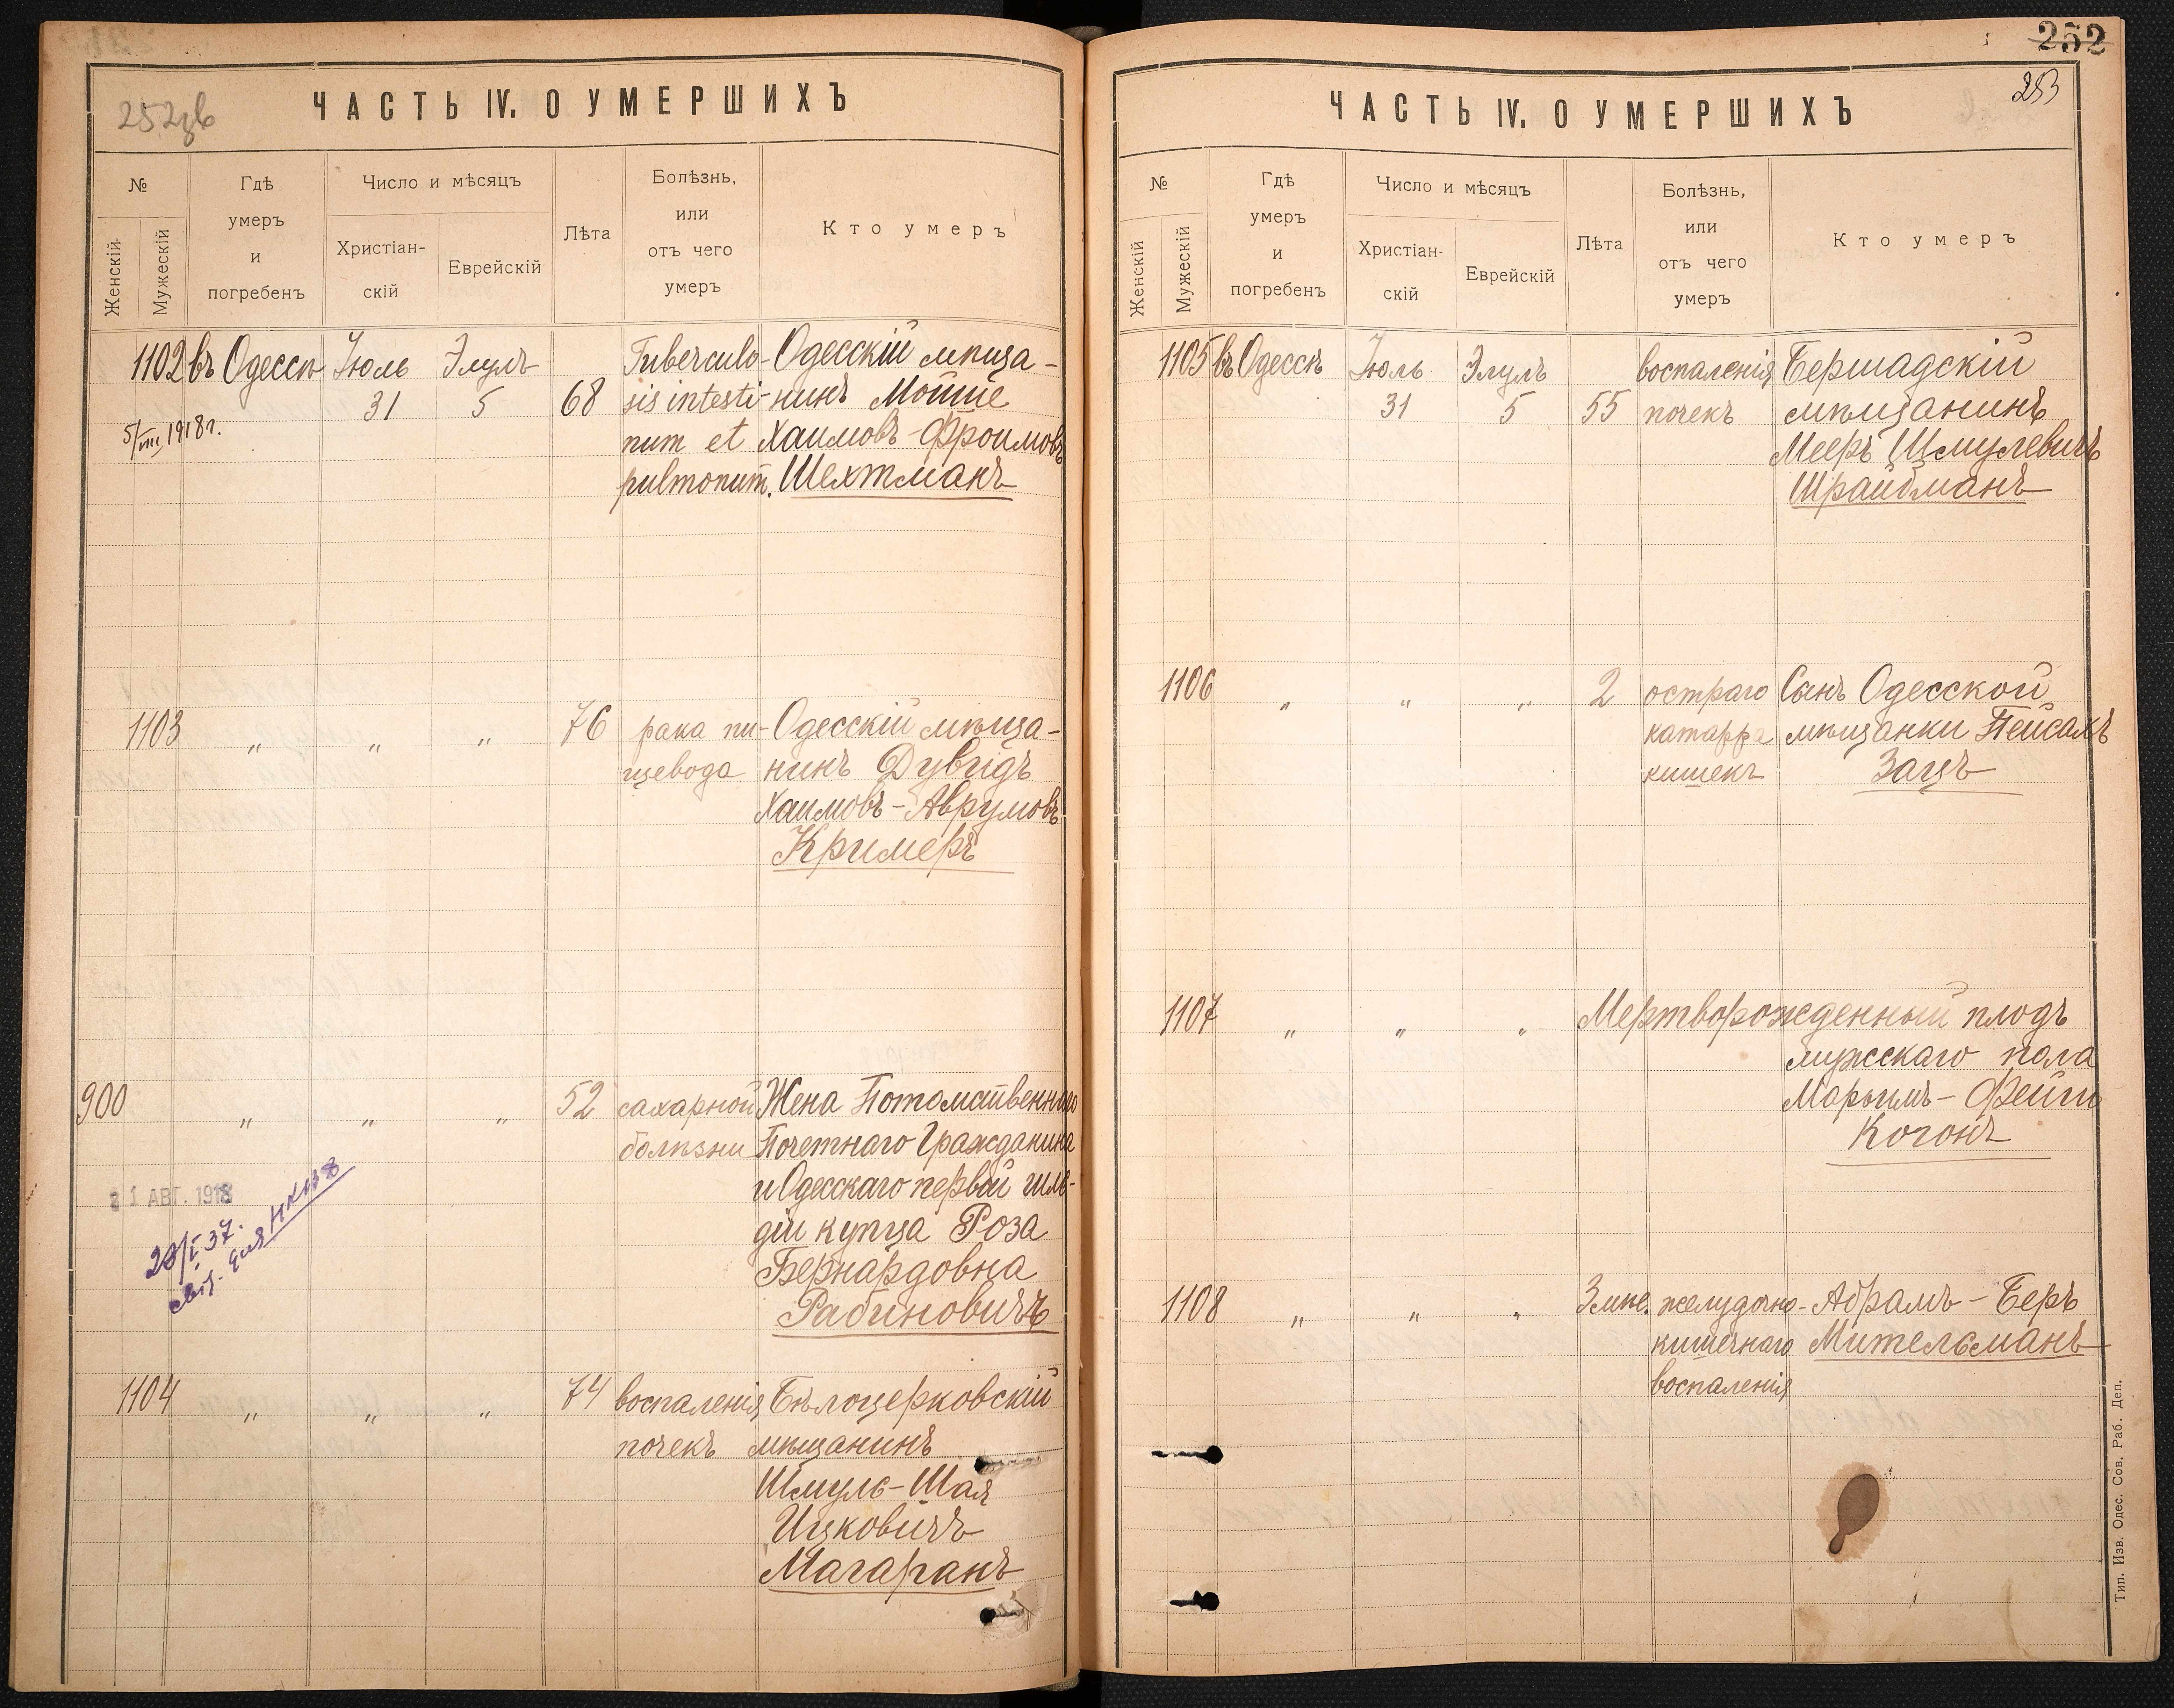 252зв
ЧАСТЬ IV. О УМЕРШИХЪ
№
Женскій
Мужескій
Гдѣ
умеръ
и
погребенъ
Число и мѣсяцъ
Христіан-
скій
Еврейскій
Лѣта
Болѣзнь,
или
отъ чего
умеръ
Кто умеръ
1102 въ Одессѣ Іюль Элулъ Tuberculo- Одесскій мѣща-
31 5 68 sis intesti- нинъ Мошше
5/VIII 1918 г.
num et Хаимовъ-Фроимовъ
pulmonum. Шехтманъ
1103 „ „ „ 76 рака пи- Одесскій мѣща-
щевода нинъ Дувидъ
Хаимовъ-Аврумовъ
Кримеръ
900 „ „ „ 52 сахарной Жена Потомственнаго
болѣзни Почетнаго Гражданина
и Одесскаго первой гиль-
діи купца Роза
Бернардовна
Рабиновичъ
1 АВГ. 1918
28/I 37.
для НКВД
1104 „ „ „ 74 воспаленія Бѣлоцерковскій
почекъ мѣщанинъ
Шмуль-Шая
Ицковичъ
Магаранъ
252
253
ЧАСТЬ IV. О УМЕРШИХЪ
№
Женскій
Мужескій
Гдѣ
умеръ
и
погребенъ
Число и мѣсяцъ
Христіан-
скій
Еврейскій
Лѣта
Болѣзнь,
или
отъ чего
умеръ
Кто умеръ
1105 въ Одессѣ Іюль Элулъ воспаленія Бершадскій
31 5 55 почекъ мѣщанинъ
Мееръ Шмулевичъ
Шрайбманъ
1106 „ „ „ 2 остраго Сынъ Одесской
катарра мѣщанки Пейсахъ
кишекъ Зацъ
1107 „ „ „ Мертворожденный плодъ
мужскаго пола
Марьимъ-Фейги
Когонъ
1108 „ „ „ 3 мѣс. желудочно- Абрамъ-Беръ
кишечнаго Мительманъ
воспаленія
Тип. Изв. Одес. Сов. Раб. Деп.